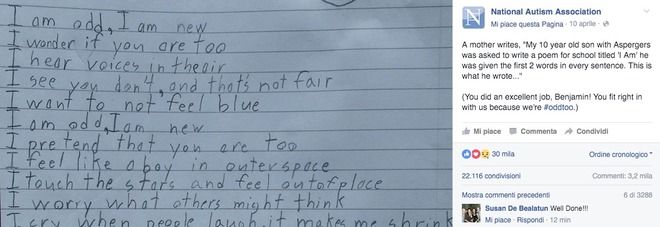 I am odd, I am new
I wonder if you are too
I hear voices in the air
I see you don't, and that's not fair
I want to not feel blue
I am odd, I am new
I pretend that you are too
I feel like a boy in outerspace
I touch the stars and feel out of place
I worry what others might think
I cry when people laugh, it makes me shrink
National Autism Association
Mi piace questa Pagina · 10 aprile ·
A mother writes, "My 10 year old son with Aspergers
was asked to write a poem for school titled 'I Am' he
was given the first 2 words in every sentence. This is
what he wrote..."
(You did an excellent job, Benjamin! You fit right in
with us because we're #oddtoo.)
Mi piace Commenta Condividi
30 mila
Ordine cronologico
22.116 condivisioni
Commenti: 3,2 mila
Mostra commenti precedenti
6 di 3288
Susan De Bealatun Well Done!!!
Mi piace · Rispondi · 12 min